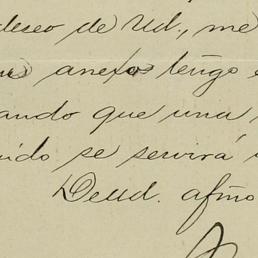 deseo de Ud., me
anexos tengo
ando que una
ido se servirá
Deud. afmo